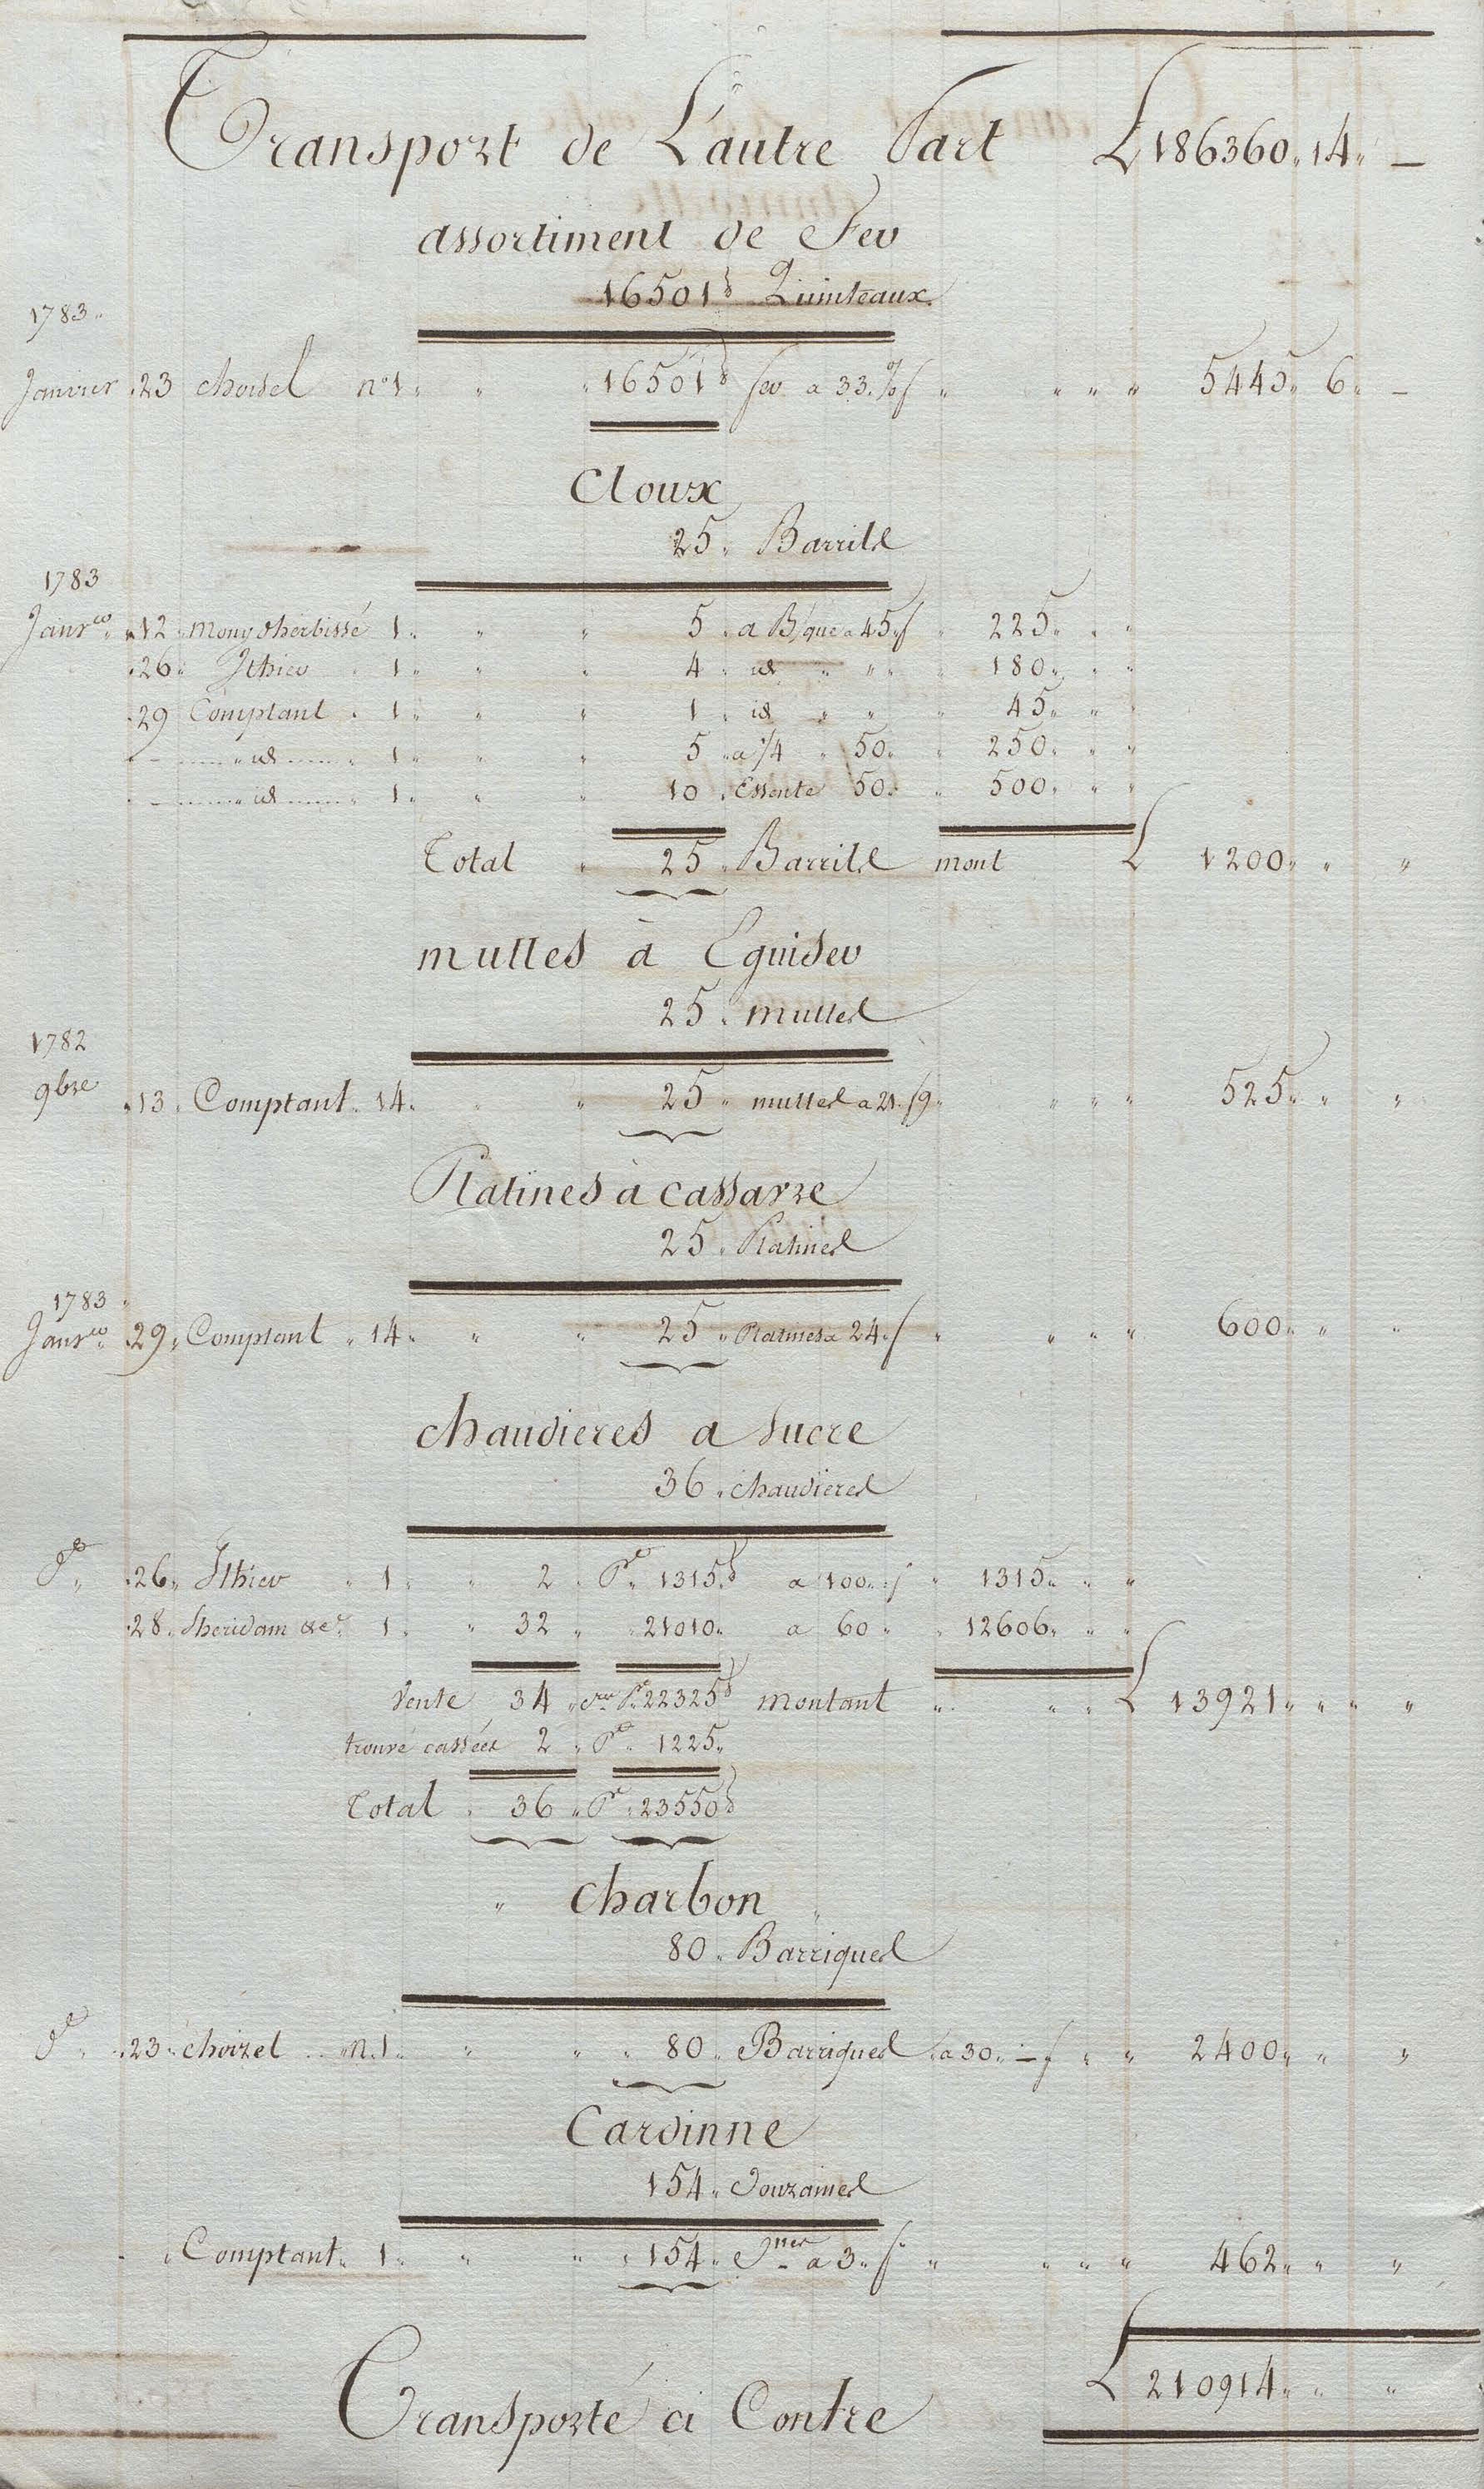 Transport de L'autre Part L 186360 " 14 " —
assortiment de Fer
16501 lb Quinteaux
1783 "
Janvier 23 choisel n° 1 " " " 16501 lb fer a 33 " % f " " " " 5445 " 6 " —
Cloux
25 " Barrils
1783
Janv.er " 12 " Mony d'herbissé 1 " " " 5 " a B/que a 45 " f " 225 " " "
" 26 " Ithier " 1 " " " 4 " id " " " " 180 " " "
" 29 Comptant " 1 " " " 1 " id " " " 45 " " "
" — " id " 1 " " " 5 " a 1/4 " 50 " " 250 " " "
" — " id " 1 " " " 10 " Essente 50 " " 500 " " "
Total " 25 " Barrils mont L 1200 " " "
mulles à Eguiser
25 " mulles
1782
9bre " 13 " Comptant " 14 " " " 25 " mulles a 21 " f 9 " " " " 525 " " "
Platines à cassave
25 " Platines
1783 "
Janv.er 29 " Comptant " 14 " " " 25 " Platines a 24 " f " " " " 600 " " "
chaudieres a Sucre
36 " chaudieres
d° " 26 " Ithier " 1 " " 2 " Pt 1315 lb a 100 " f " 1315 " " "
" 28 " Sheridam &c.e 1 " " 32 " " 21010 " a 60 " " 12606 " " "
Vente 34 " Pt 22325 lb montant " " " L 13921 " " " "
trouvé cassées 2 " Pt 1225 "
Total " 36 " Pt " 23550 lb
" charbon "
80 " Barriques
d° " 23 " choizel " n. 1 " " " " 80 " Barriques " a 30 " — f " " 2400 " " "
Cardinne
154 " douzaines
" " Comptant " 1 " " " " 154 " d.nes a 3 " f " " " " " 462 " " "
Transporté ci Contre L 210914 " " "